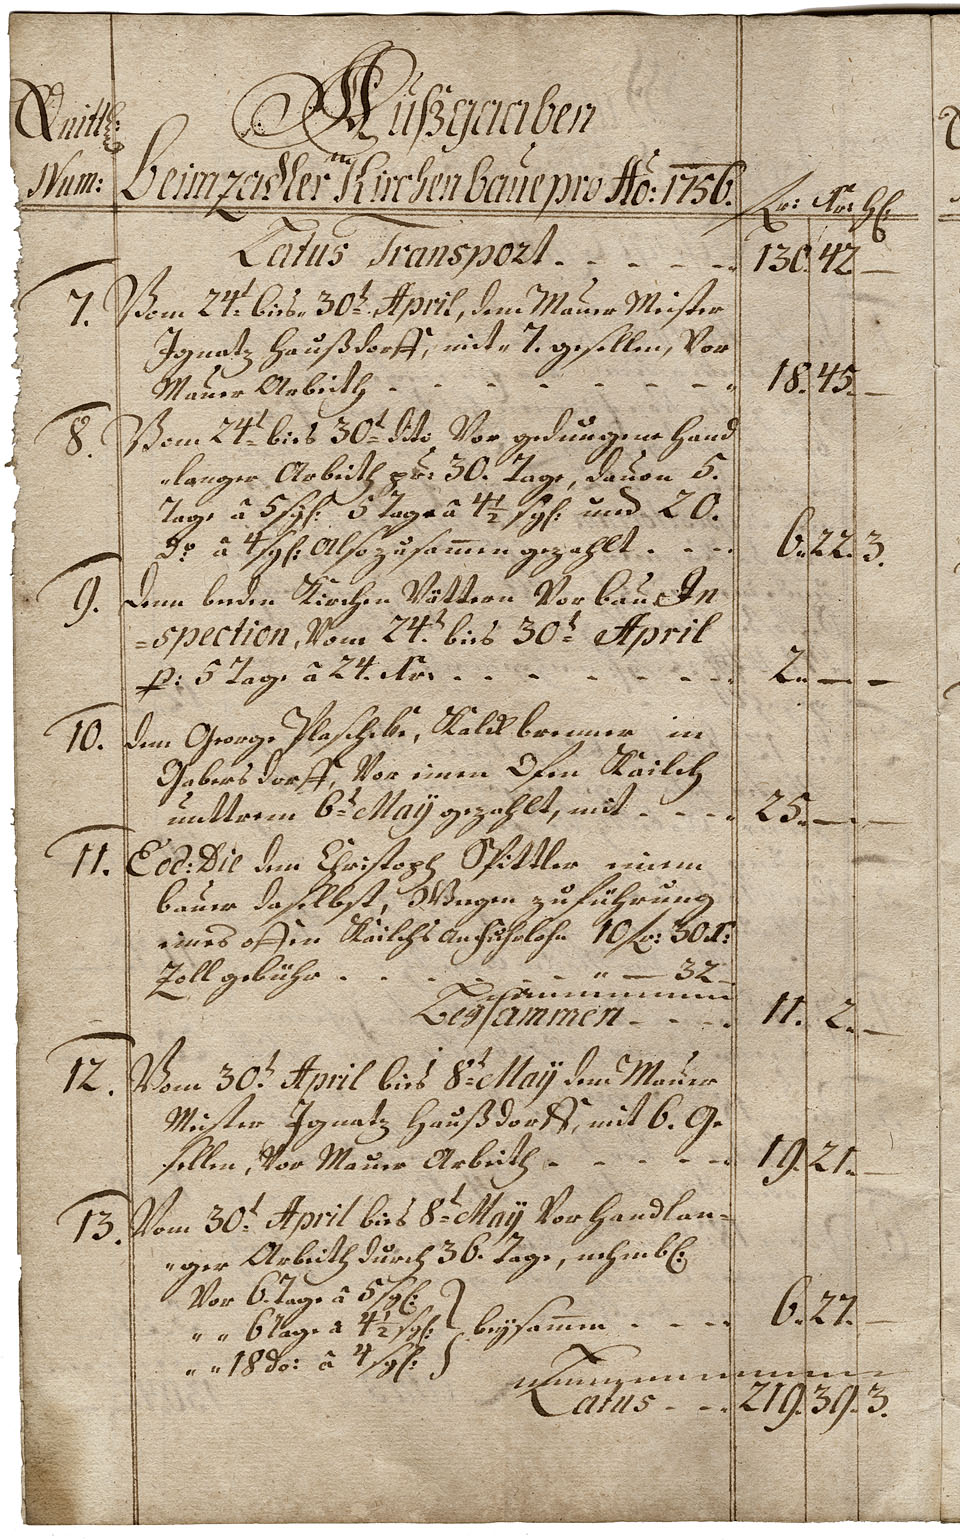 Quitt:
Num:
Außgaaben
beim zadler Kirchen baue pro Ao: 1756.
Fr: Kr: Hl:
Latus Transport - - - - - 130. 42 —
7. Vom 24t bies 30t April, dem Mauer Meister
Ignatz Haußdorff, mit 7. gesellen, Vor
Mauer Arbeith - - - - - - - 18. 45. —
8. Vom 24t bies 30t dito Vor gedungene Hand
langer Arbeith pr: 30. Tage, dauon 5.
Tage â 5 sgl: 5 Tage â 4 1/2 sgl: und 20.
do â 4 sgl: Also zusam̄en gezahlt - - - 6. 22. 3.
9. Denn beeden Kirchen Vättern Vor bau In
=spection, Vom 24t bies 30t April
p: 5 Tage â 24. Kr: - - - - - - 2. — —
10. dem George Plaschke, Kalck brenner in
Gabersdorff, Vor einen Ofen Kailch
unterm 6t May gezahlt, mit - - - 25. — —
11. Eod: Die dem Christoph Spittler einem
bauer daselbst, Wegen zuführung
eines offen Kailchs an fuhrlohn 10 fr: 30 K:
Zoll gebühr - - - - - " — 32
Beysammen - - - 11. 2. —
12. Vom 30t April bies 8t May dem Mauer
Meister Ignatz Haußdorff, mit 6. Ge
sellen, Vor Mauer Arbeith - - - - - 19. 21. —
13. Vom 30t April bies 8t May Vor Handlan=
ger Arbeith durch 36. Tage, nehmbl:
Vor 6. Tage â 5 sgl:
" " 6 tage â 4 1/2 sgl: } beysam̄en - - - - 6. 27. —
" " 18 do: â 4 sgl:
Latus - - - 219. 39. 3.